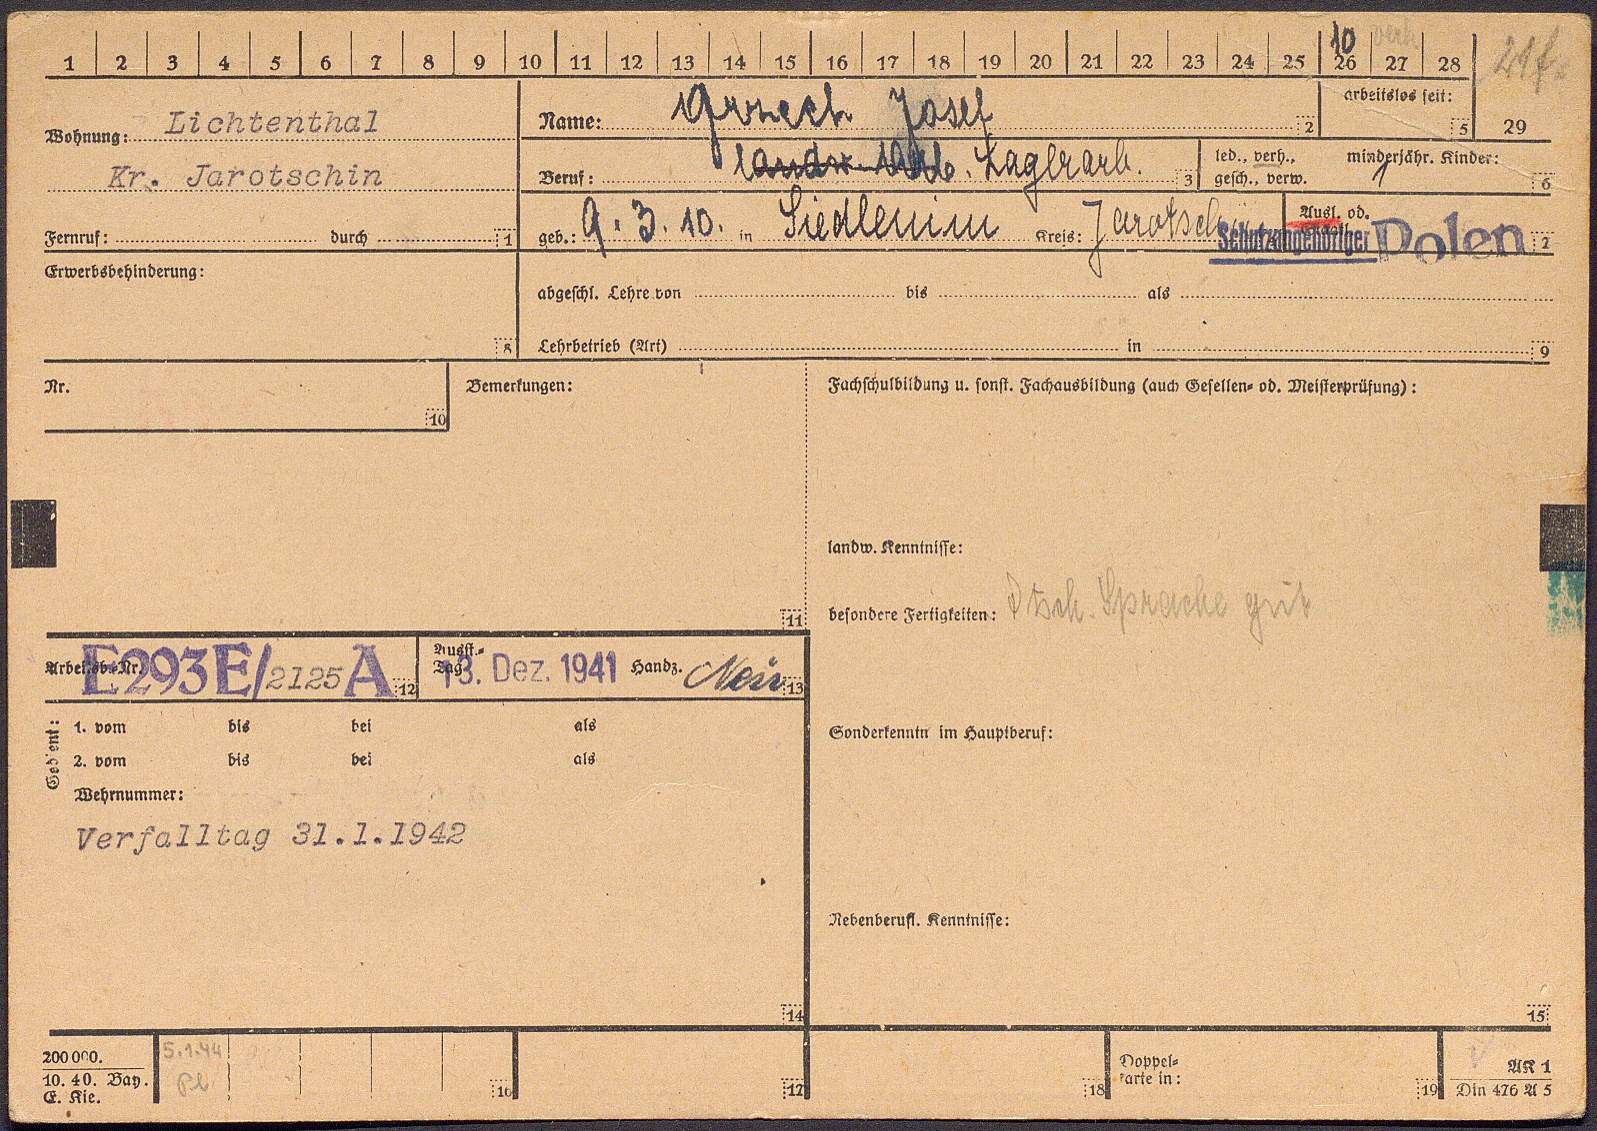 1 2 3 4 5 6 7 8 9 10 11 12 13 14 15 16 17 18 19 20 21 22 23 24 25 26 27 28
10 verh
21f.
Wohnung: Lichtenthal
Kr. Jarotschin
Fernruf: durch 1
Name: Josef 2
arbeitslos seit: 5
29
Beruf: landw. Arb. Lagerarb. 3
led., verh.,
gesch., verw.
minderjähr. Kinder: 1 6
geb.: 9.3.10. in Siedlemin Kreis: Jarotsch
Ausl. od.
Schutzangehöriger Polen 7
Erwerbsbehinderung: 8
abgeschl. Lehre von bis als
Lehrbetrieb (Art) in 9
Nr. 10
Bemerkungen: 11
Fachschulbildung u. sonst. Fachausbildung (auch Gesellen- od. Meisterprüfung):
landw. Kenntnisse:
besondere Fertigkeiten: Dtsch. Sprache gut
Arbeitsb.-Nr. E293E/2125A 12
Ausst.-
Tag 13. Dez. 1941 Handz. 13
Gedient:
1. vom bis bei als
2. vom bis bei als
Wehrnummer:
Verfalltag 31.1.1942
14
Sonderkenntn im Hauptberuf:
Nebenberufl. Kenntnisse:
15
200 000.
10. 40. Bay.
E. Kie.
5.1.44
16
17
18
Doppel-
karte in: 19
AK 1
Din 476 A 5